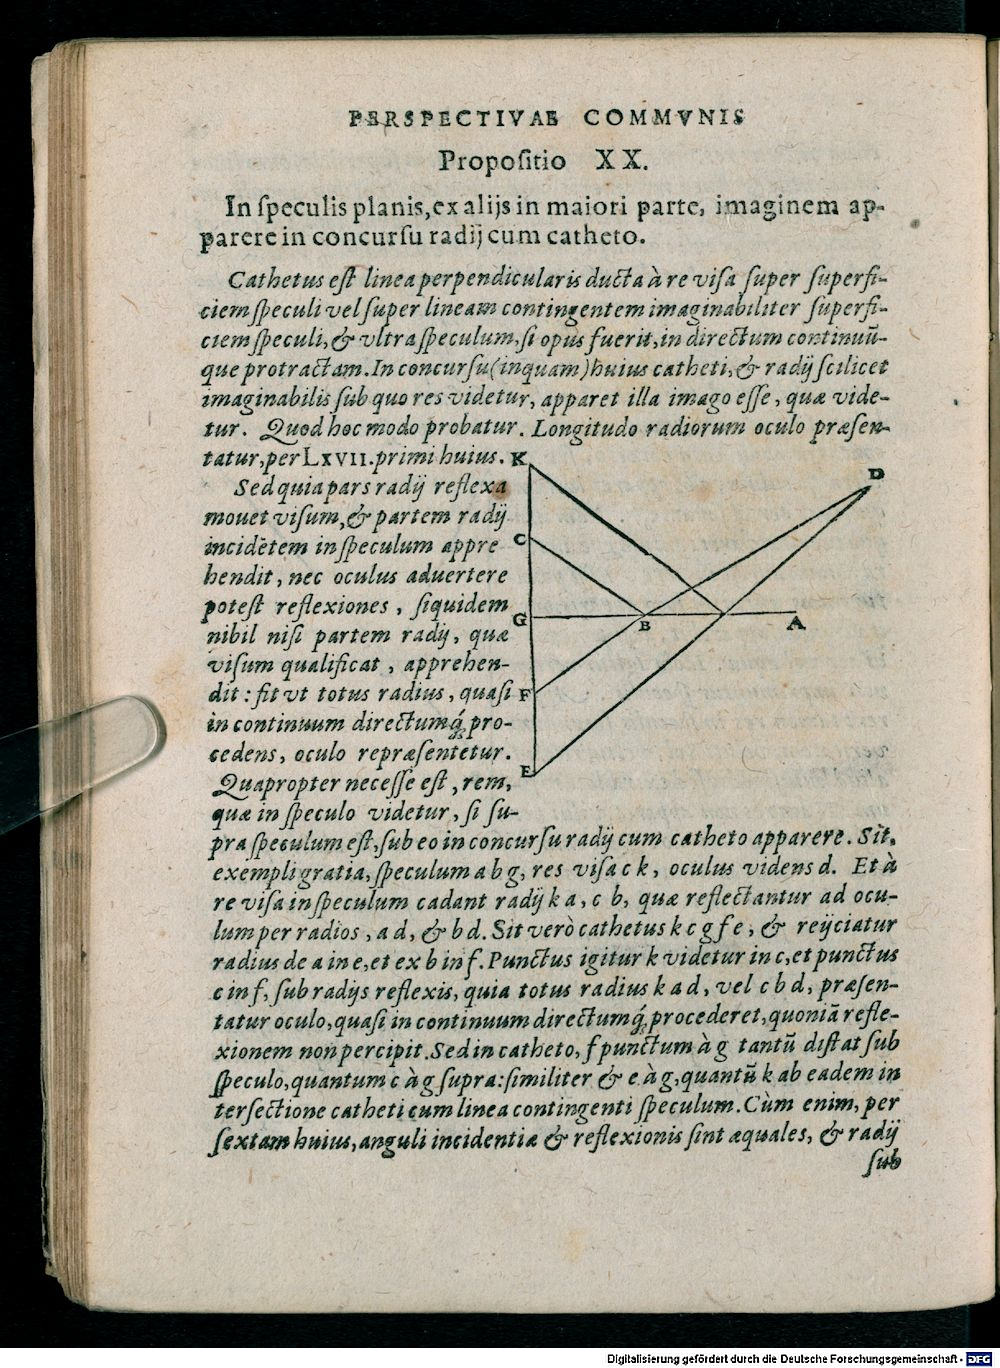 PERSPECTIVAE COMMVNIS
Propositio XX.
In speculis planis, ex alijs in maiori parte, imaginem ap-
parere in concursu radij cum catheto.
Cathetus est linea perpendicularis ducta à re visa super superfi-
ciem speculi vel super lineam contingentem imaginabiliter superfi-
ciem speculi, & vltra speculum, si opus fuerit, in directum continuũ-
que protractam. In concursu (inquam) huius catheti, & radij scilicet
imaginabilis sub quo res videtur, apparet illa imago esse, quæ vide-
tur. Quod hoc modo probatur. Longitudo radiorum oculo præsen-
tatur, per LXVII. primi huius.
Sed quia pars radij reflexa
mouet visum, & partem radij
incidẽtem in speculum appre
hendit, nec oculus aduertere
potest reflexiones, siquidem
nihil nisi partem radij, quæ
visum qualificat, apprehen-
dit: fit vt totus radius, quasi
in continuum directumq́; pro-
cedens, oculo repræsentetur.
Quapropter necesse est, rem,
quæ in speculo videtur, si su-
K
D
C
G
B
A
F
E
pra speculum est, sub eo in concursu radij cum catheto apparere. Sit,
exempli gratia, speculum a b g, res visa c k, oculus videns d. Et à
re visa in speculum cadant radij k a, c b, quæ reflectantur ad ocu-
lum per radios, a d, & b d. Sit verò cathetus k c g f e, & reijciatur
radius de a in e, et ex b in f. Punctus igitur k videtur in c, et punctus
c in f, sub radijs reflexis, quia totus radius k a d, vel c b d, præsen-
tatur oculo, quasi in continuum directumq́; procederet, quoniã refle-
xionem non percipit. Sed in catheto, f punctum à g tantũ distat sub
speculo, quantum c à g supra: similiter & e à g, quantũ k ab eadem in
tersectione catheti cum linea contingenti speculum. Cùm enim, per
sextam huius, anguli incidentiæ & reflexionis sint æquales, & radij
sub
Digitalisierung gefördert durch die Deutsche Forschungsgemeinschaft - DFG